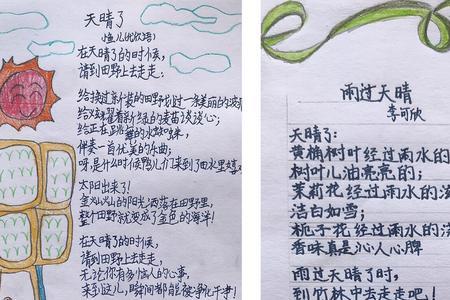 天晴了
在天晴了的时候，
请到田野上去走走：
给换过新装的田野划过一条美丽的
给正在跳舞的水蚊姑妹，
伴奏一首优美的乐曲；
呀是什么时候鸭儿们来到了田水里嬉
太阳出来了！
金灿灿的阳光洒落在田野里，
整个田野就变成了金色的海洋！
在天晴了的时候，
请到田野上去走走，
无论你有多恼人的心事，
来到这儿，瞬间都能被净化干净！
雨过天晴
李可欣
天晴了：
黄桷树叶经过雨水的
树叶儿油亮亮的；
茉莉花经过雨水的
洁白如雪；
栀子花经过雨水的
香味真是沁人心脾
雨过天晴了时，
到竹林中去走走吧！